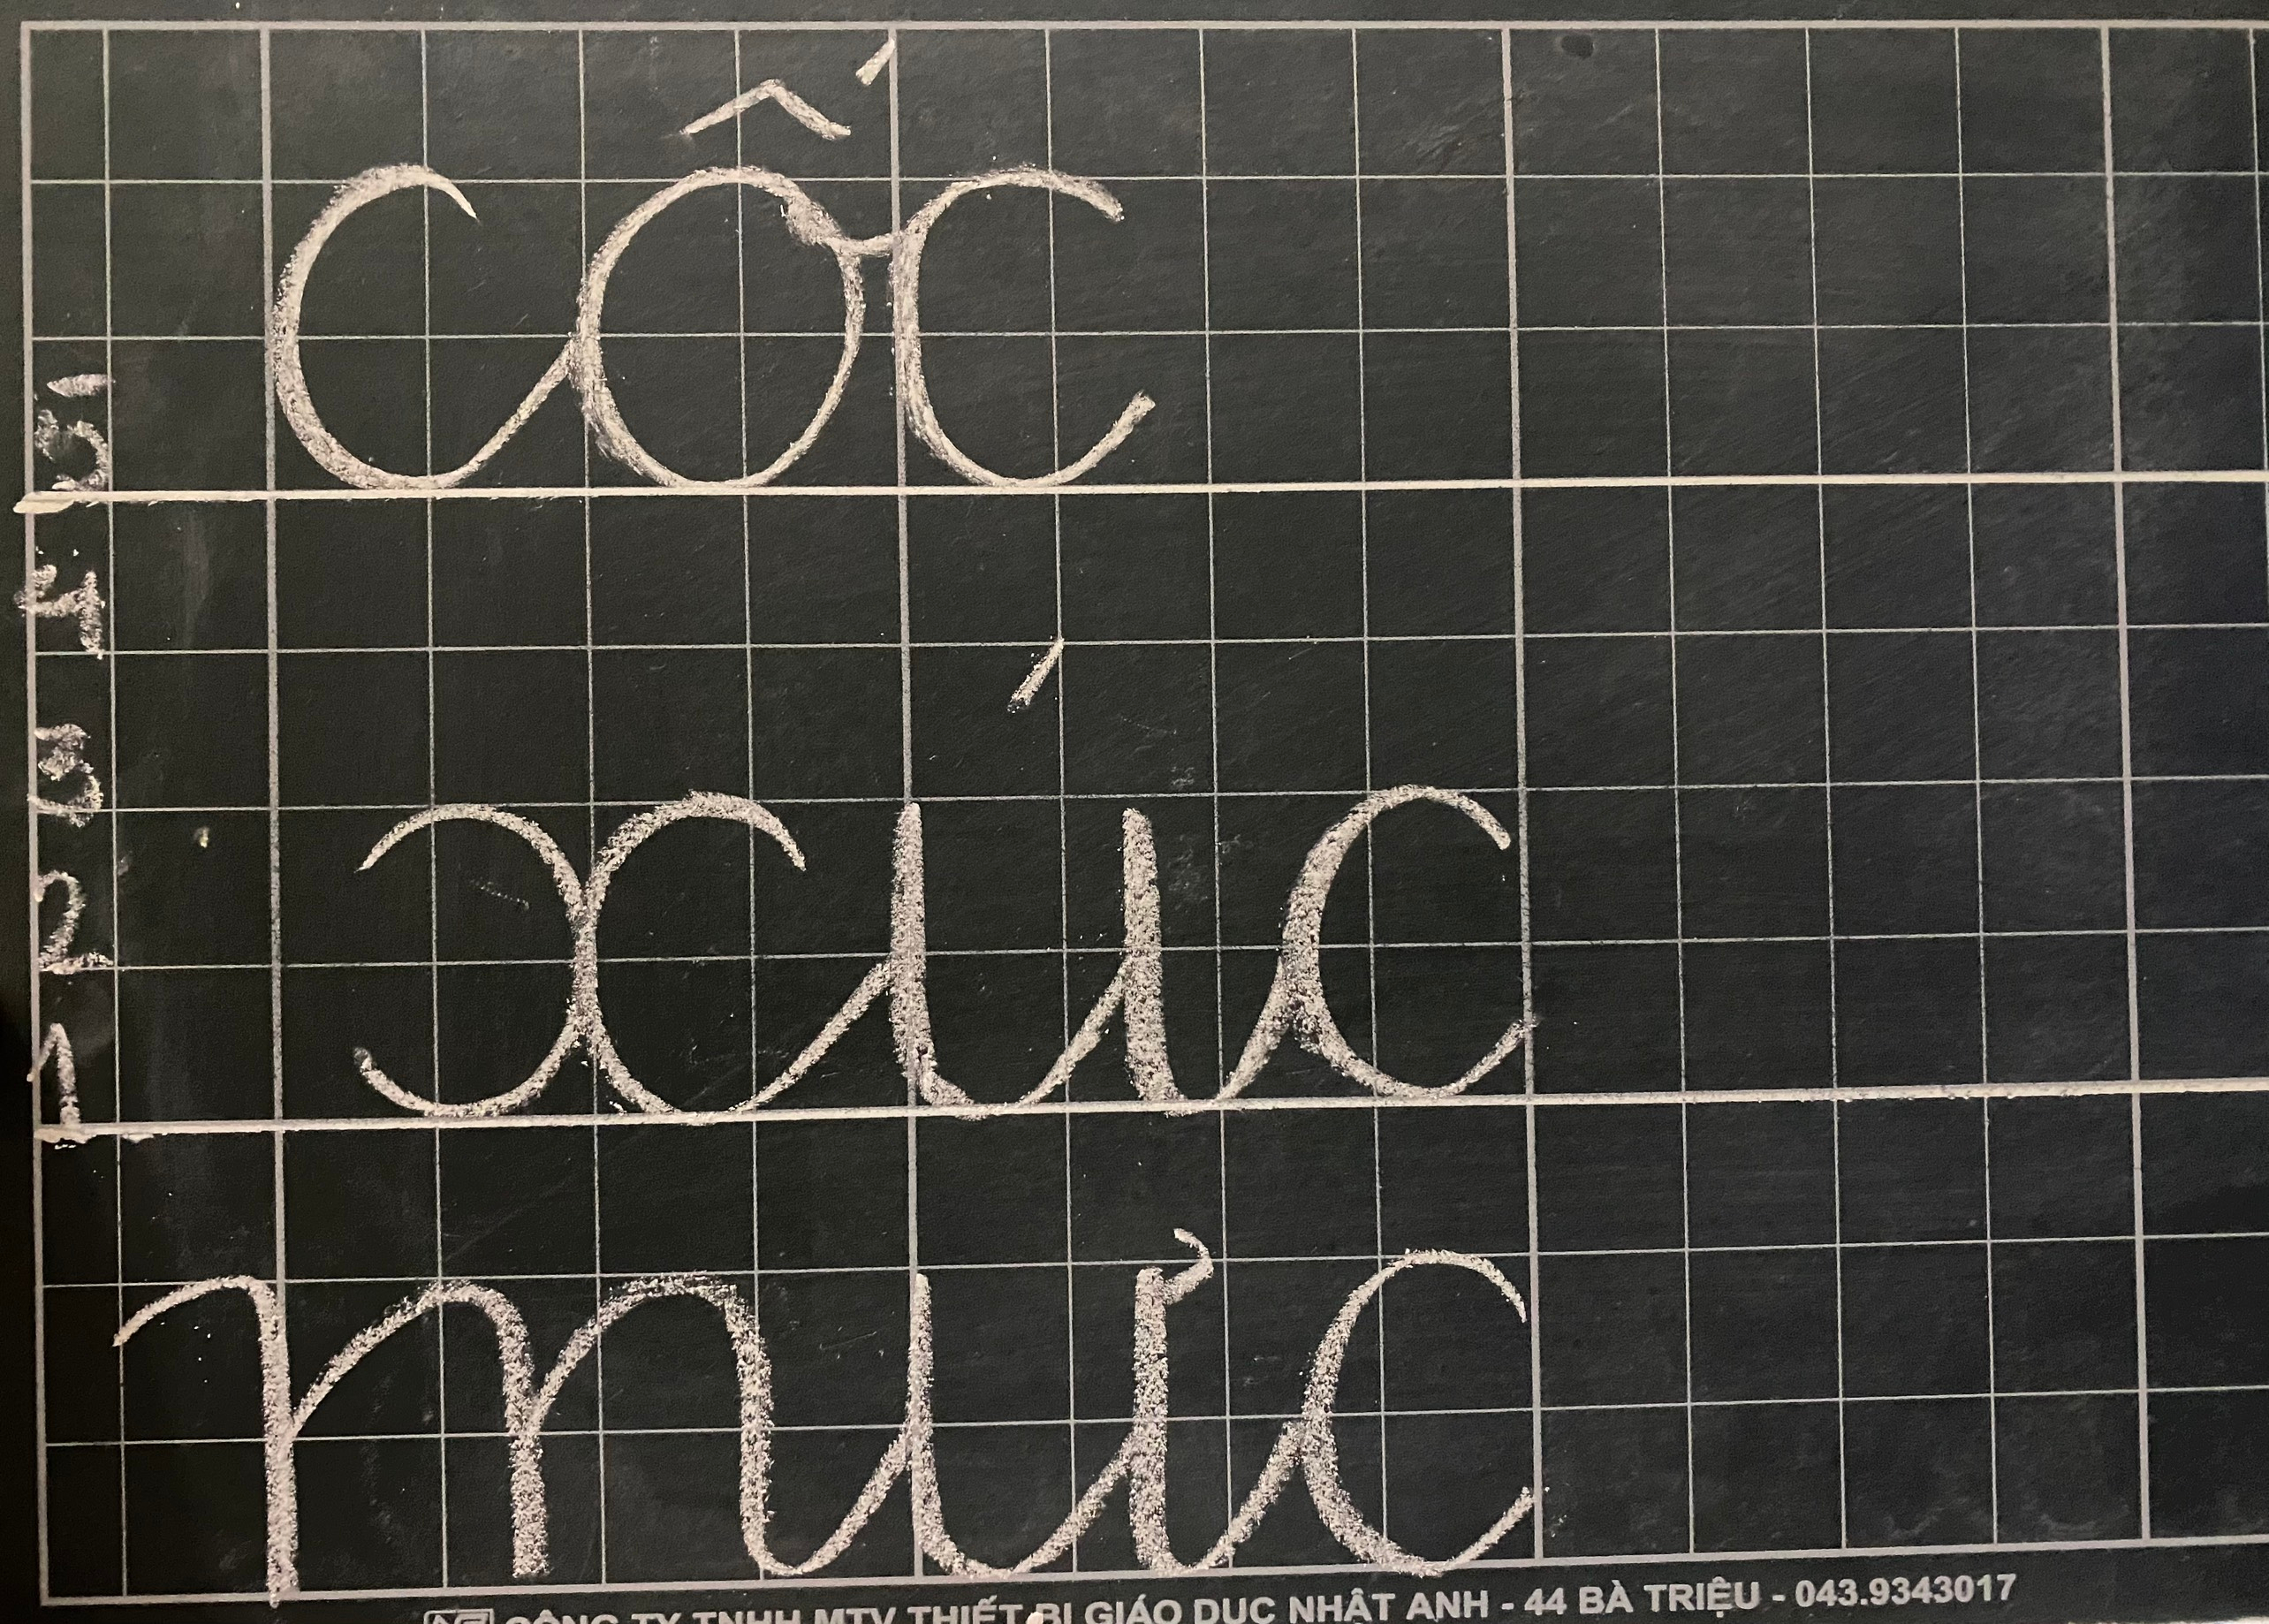 cốc
5
4
3
xúc
2
1
mưc
CÔNG TY TNHH MTV THIẾT BỊ GIÁO DỤC NHẬT ANH - 44 BÀ TRIỆU - 043.9343017